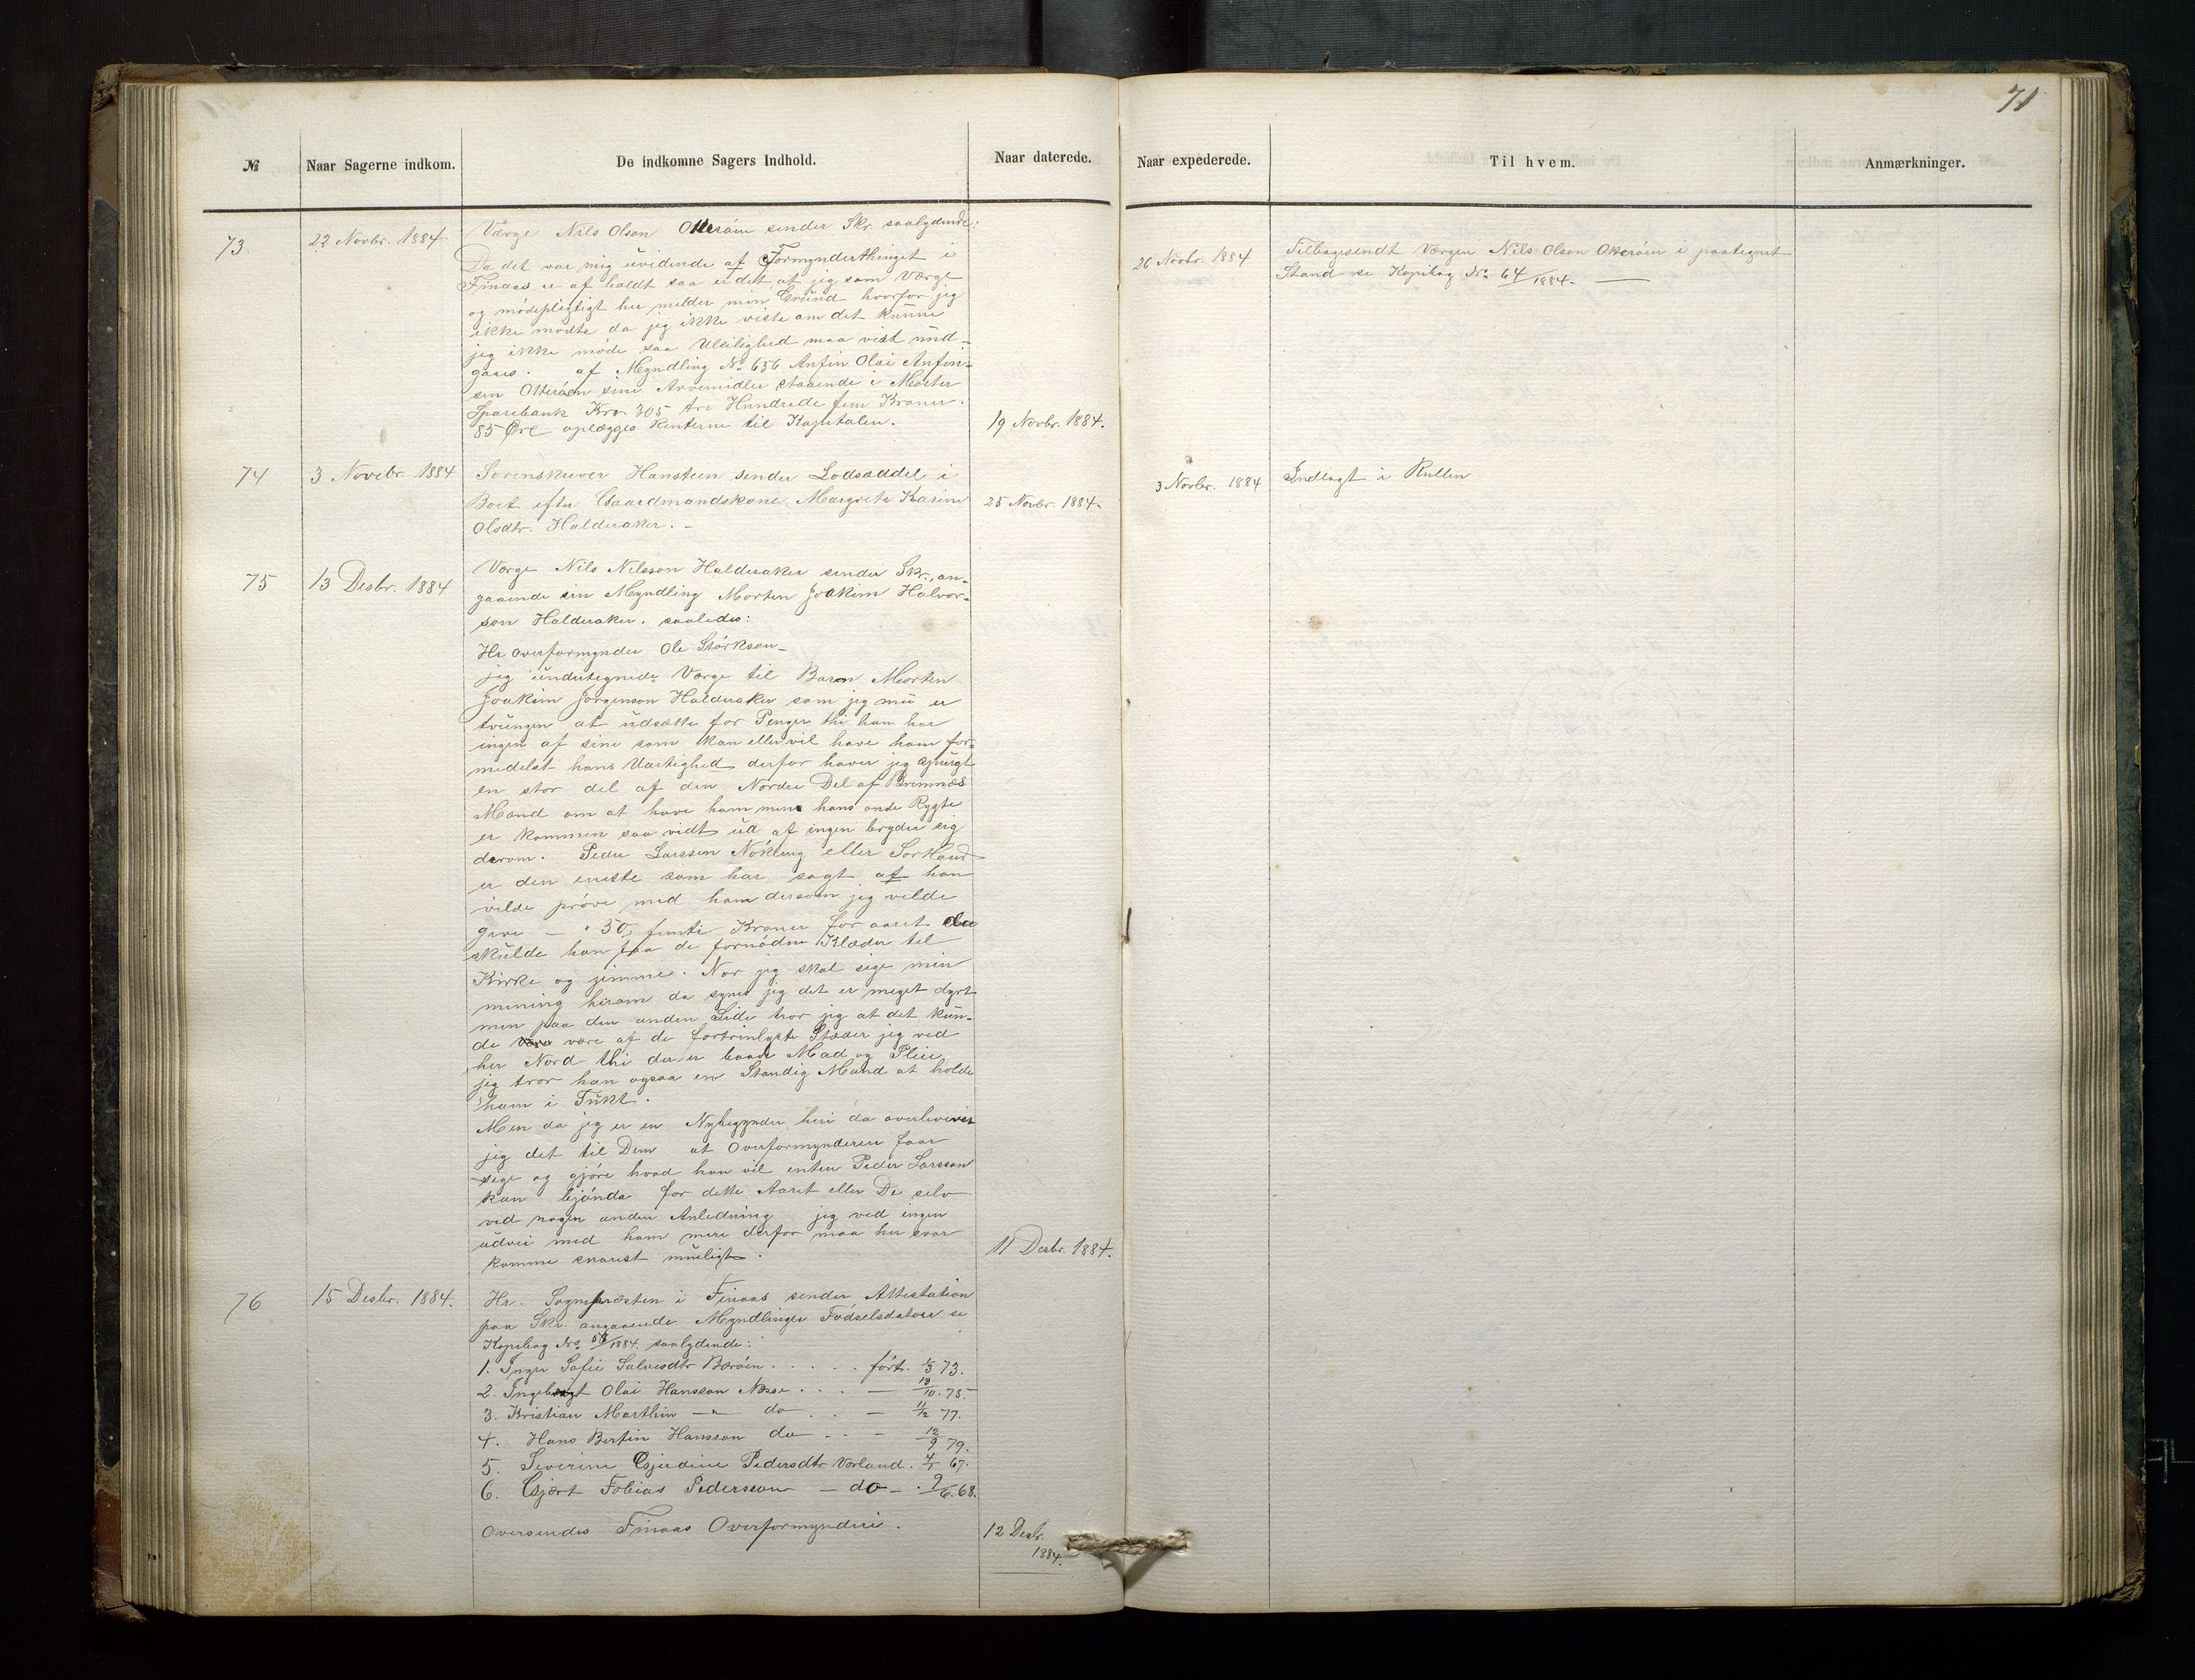 71
№ Naar Sagerne indkom. De indkomne Sagers Indhold. Naar daterede. Naar expederede. Til hvem. Anmærkninger.
73 22 Novbr. 1884 Værge Nils Olson Otterøen sender Skr. saalydende:
Da det var mig uvidende af Formynderthinget i
Finaas er af holdt saa er det at jeg som Værge
og mødepligtigt her melder min Grund hvorfor jeg
ikke mødte da jeg ikke viste om det kunne
jeg ikke møde saa Uleilighed maa vist und-
gaaes. af Myndling No 656 Anfin Olai Anfin-
sen Otterøen sine Arvemidler staaende i Moster
Sparebank Kro. 305 tre Hundrede fem Kroner.
85 Øre oplægges Renterne til Kapitalen. 19 Novbr. 1884.
26 Novbr. 1884 Tilbagesendt Værgen Nils Olson Otterøen i paategnet
Stand se Kopibog No 64/1884.
74 3 Novebr. 1884 Sorenskriver Hansteen sender Lodseddel i
Boet efter Gaardmandskone Margrete Karine 25 Novbr. 1884.
Olsdtr. Halderaker. -
3 Novbr. 1884 Indlagt i Rullen
75 13 Desbr. 1884 Værge Nils Nilsson Halderaker sender Skr., an-
gaaende sin Myndling Morten Joakim Halvor-
son Halderaker. saaledes:
Hr Overformynder Ole Størkson -
jeg undertegnede Værge til Barn Morten
Joakim Jørgenson Halderaker som jeg nu er
tvungen at udsætte for Penger thi han har
ingen af sine som kan eller vil have ham for-
medelst hans Uartighed derfor haver jeg spurgt
en stor del af den Nordre Del af Bremnæs
Mænd om at have ham men hans onde Rygte
er kommen saa vidt ud af ingen bryder sig
derom. Peder Larsson Nøkling eller Sortland
er den eneste som har sagt af han
vilde prøve med ham dersom jeg vilde
give - 50, femti Kroner for aaret da
skulde han faa de fornødne Klæder til
Kirke og jimme. Nor jeg skal sige min
mening herom da synes jeg det er meget dyrt
men paa den anden Side tror jeg at det kun-
de være af de fortrinlyste Stæder jeg ved
her Nord thi der er baade Mad og Pleie
jeg tror han ogsaa en Standig Mand at holde
ham i Tukt.
Men da jeg er en Nybegynder heri da overleverer
jeg det til Dem at Overformynderen faar
sige og gjøre hvad han vil enten Peder Larsson
kan bejønde for dette Aaret eller De selv
ved nogen anden Anledning jeg ved ingen
udvei med ham mere derfor maa her svar
komme snarest mueligt. 11 Desbr. 1884.
76 15 Desbr. 1884. Hr. Sognepræsten i Finaas sender Attestation
paa Skr. angaaende Myndlinger Fødselsdatoer se
Kopibog No 58/1884. saalydende:
1. Inger Sofie Salvesdtr Børøen . . . . . født. 5/3 73.
2. Ingebrigt Olai Hansson Næsse . . . — 19/10. 75.
3. Kristian Marthin —"— do . . — 11/12 77.
4. Hans Bertin Hansson do . . - 12/9 79.
5. Severine Gjerdine Pedersdtr Vorland. 4/1 67.
6. Gjært Tobias Pedersson — do — . 9/6. 68.
Oversendes Finaas Overformynderi. 12 Desbr.
1884.